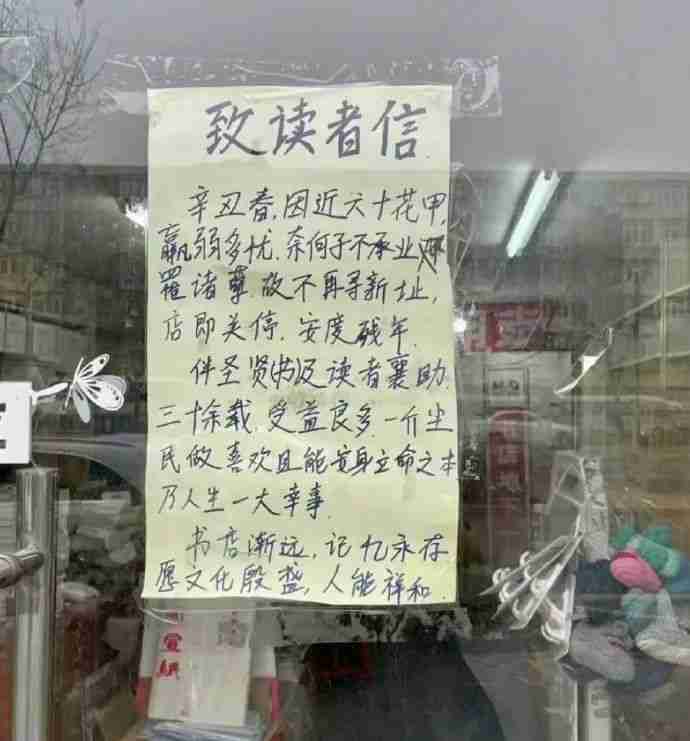 致读者信
辛丑春,因近六十花甲,
羸弱多忧.奈何子不承业
罹诸孽.故不再寻新址,
店即关停.安度残年.
伴圣贤(书)及读者襄助.
三十余载.受益良多.一介生
民做喜欢且能安身立命之本
乃人生一大幸事.
书店渐远,记忆永存
愿文化殷盛,人能祥和.